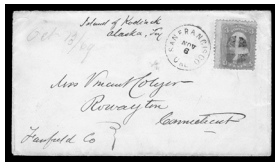 Island of Kodiack
Alaska, Ty
Oct 13/69
SAN FRANCISCO
NOV
6
CAL
Mrs Vincent Colyer
Rowayton
Connecticut
Fairfield Co